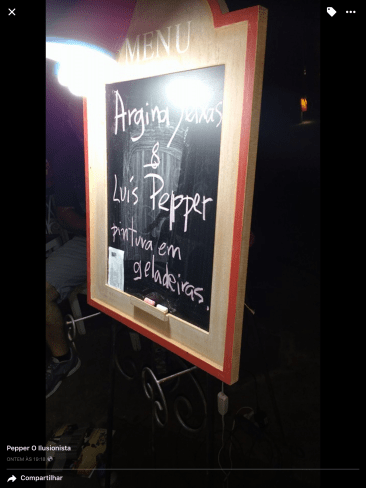 MENU
Argina Seixas
&
Luís Pepper
pintura em
geladeiras.
Pepper O Ilusionista
ONTEM ÀS 19:19
Compartilhar